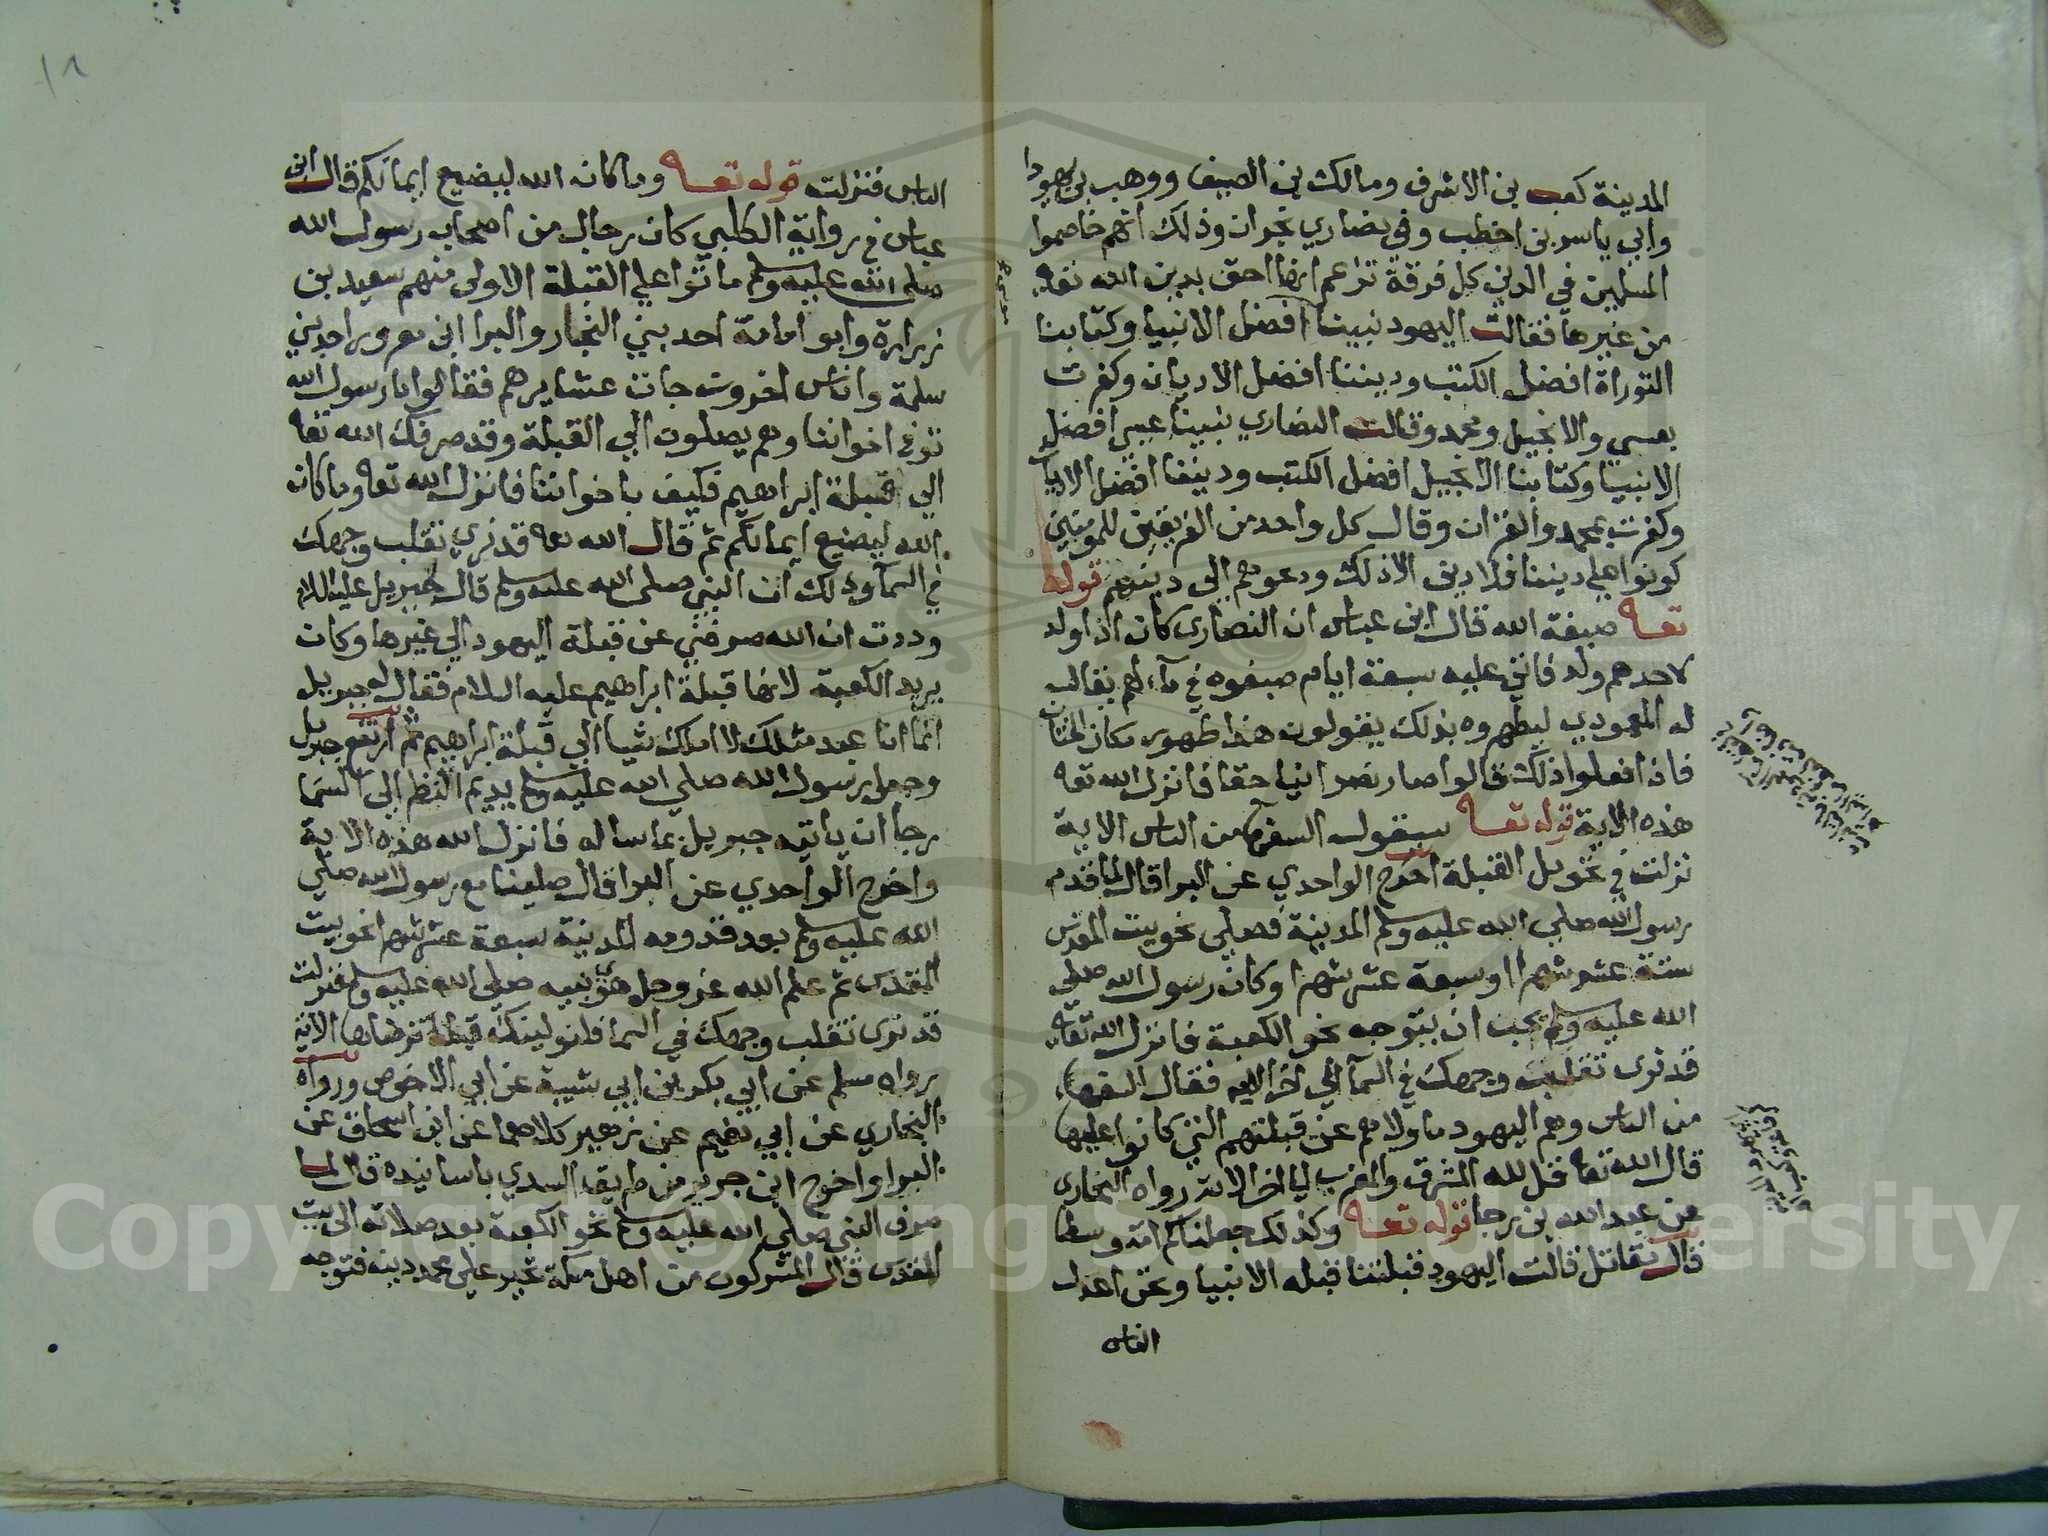 المدينة كعب بن الاشرف ومالك بن الصيف ووهب بن يهودا
وابي ياسر بن اخطب وفي نصاري نجران وذلك انهم خاصموا
المسلمين في الدين كل فرقة تزعم انها احق بدين الله تعا
من غيرها فقالت اليهود نبينا افضل الانبيا وكتابنا
التوراة افضل الكتب وديننا افضل الاديان وكفرت
بعيسي والانجيل ومحمد وقالت النصاري نبينا عيسي افضل
الانبيا وكتابنا الانجيل افضل الكتب وديننا افضل الاديان
وكفرت بمحمد والقران وقال كل واحد من الفريقين للمومنين
كونوا علي ديننا فلا دين الا ذلك ودعوهم الي دينهم قوله
تعا صبغة الله قال ابن عباس ان النصاري كان اذا ولد
لاحدهم ولد فاتي عليه سبعة ايام صبغوه في مآء لهم يقال
له المعمودي ليطهروه بذلك يقولون هذا طهور مكان الختان
فاذا فعلوا ذلك قالوا صار نصرانيا حقا فانزل الله تعا
هذه الاية قوله تعا سيقول السفها من الناس الاية
نزلت في تحويل القبلة اخرج الواحدي عن البرا قال لما قدم
رسول الله صلي الله عليه وسلم المدينة فصلي نحو بيت المقدس
ستة عشر شهرا او سبعة عشر شهرا وكان رسول الله صلي
الله عليه وسلم يحب ان يتوجه نحو الكعبة فانزل الله تعا
قد نري تقلب وجهك في السمآ الي اخر الايه فقال السفها
من الناس وهم اليهود ما ولاهم عن قبلتهم التي كانوا عليها
قال الله تعا قل لله المشرق والمغرب الي اخر الاية رواه البخاري
عن عبد الله بن رجا قوله تعا وكذلك جعلناكم امة وسطا
قال مقاتل قالت اليهود قبلتنا قبله الانبيا ونحن اعدل
الناس
١٨
الناس فنزلت قوله تعا وما كان الله ليضيع ايمانكم قال ابن
عباس في رواية الكلبي كان رجال من اصحاب رسول الله
صلي الله عليه وسلم ماتوا علي القبلة الاولي منهم سعيد بن
زرارة وابو امامة احد بني النجار والبرا ابن معرور احد بني
سلمة واناس اخرون جات عشايرهم فقالوا يا رسول الله
توفي اخواننا وهم يصلون الي القبلة وقد صرفك الله تعا
الي قبلة ابراهيم فكيف باخواننا فانزل الله تعا وما كان
الله ليضيع ايمانكم ثم قال الله تعا قد نري تقلب وجهك
في السمآ وذلك ان النبي صلي الله عليه وسلم قال لجبريل عليه السلام
وددت ان الله صرفني عن قبلة اليهود الي غيرها وكان
يريد الكعبة لانها قبلة ابراهيم عليه السلام فقال له جبريل
انما انا عبد مثلك لا املك شيا الي قبلة ابراهيم ثم ارتفع جبريل
وجعل رسول الله صلي الله عليه وسلم يديم النظر الي السما
رجا ان ياتيه جبريل بما ساله فانزل الله هذه الاية
واخرج الواحدي عن البرا قال صلينا مع رسول الله صلي
الله عليه وسلم بعد قدومه المدينة سبعة عشر شهرا نحو بيت
المقدس ثم علم الله عز وجل هوي نبيه صلي الله عليه وسلم فنزلت
قد نري تقلب وجهك في السما فلنولينك قبلة ترضاها الاية
رواه مسلم عن ابي بكر بن ابي شيبة عن ابي الاحوص ورواه
البخاري عن ابي نعيم عن زهير كلاهما عن ابن اسحاق عن
البرا واخرج ابن جرير من طريق السدي باسانيده قال لما
صرف النبي صلي الله عليه وسلم نحو الكعبة بعد صلاته الي بيت
المقدس قال المشركون من اهل مكة تحير علي محمد دينه فتوجه
Copyright © King Saud University